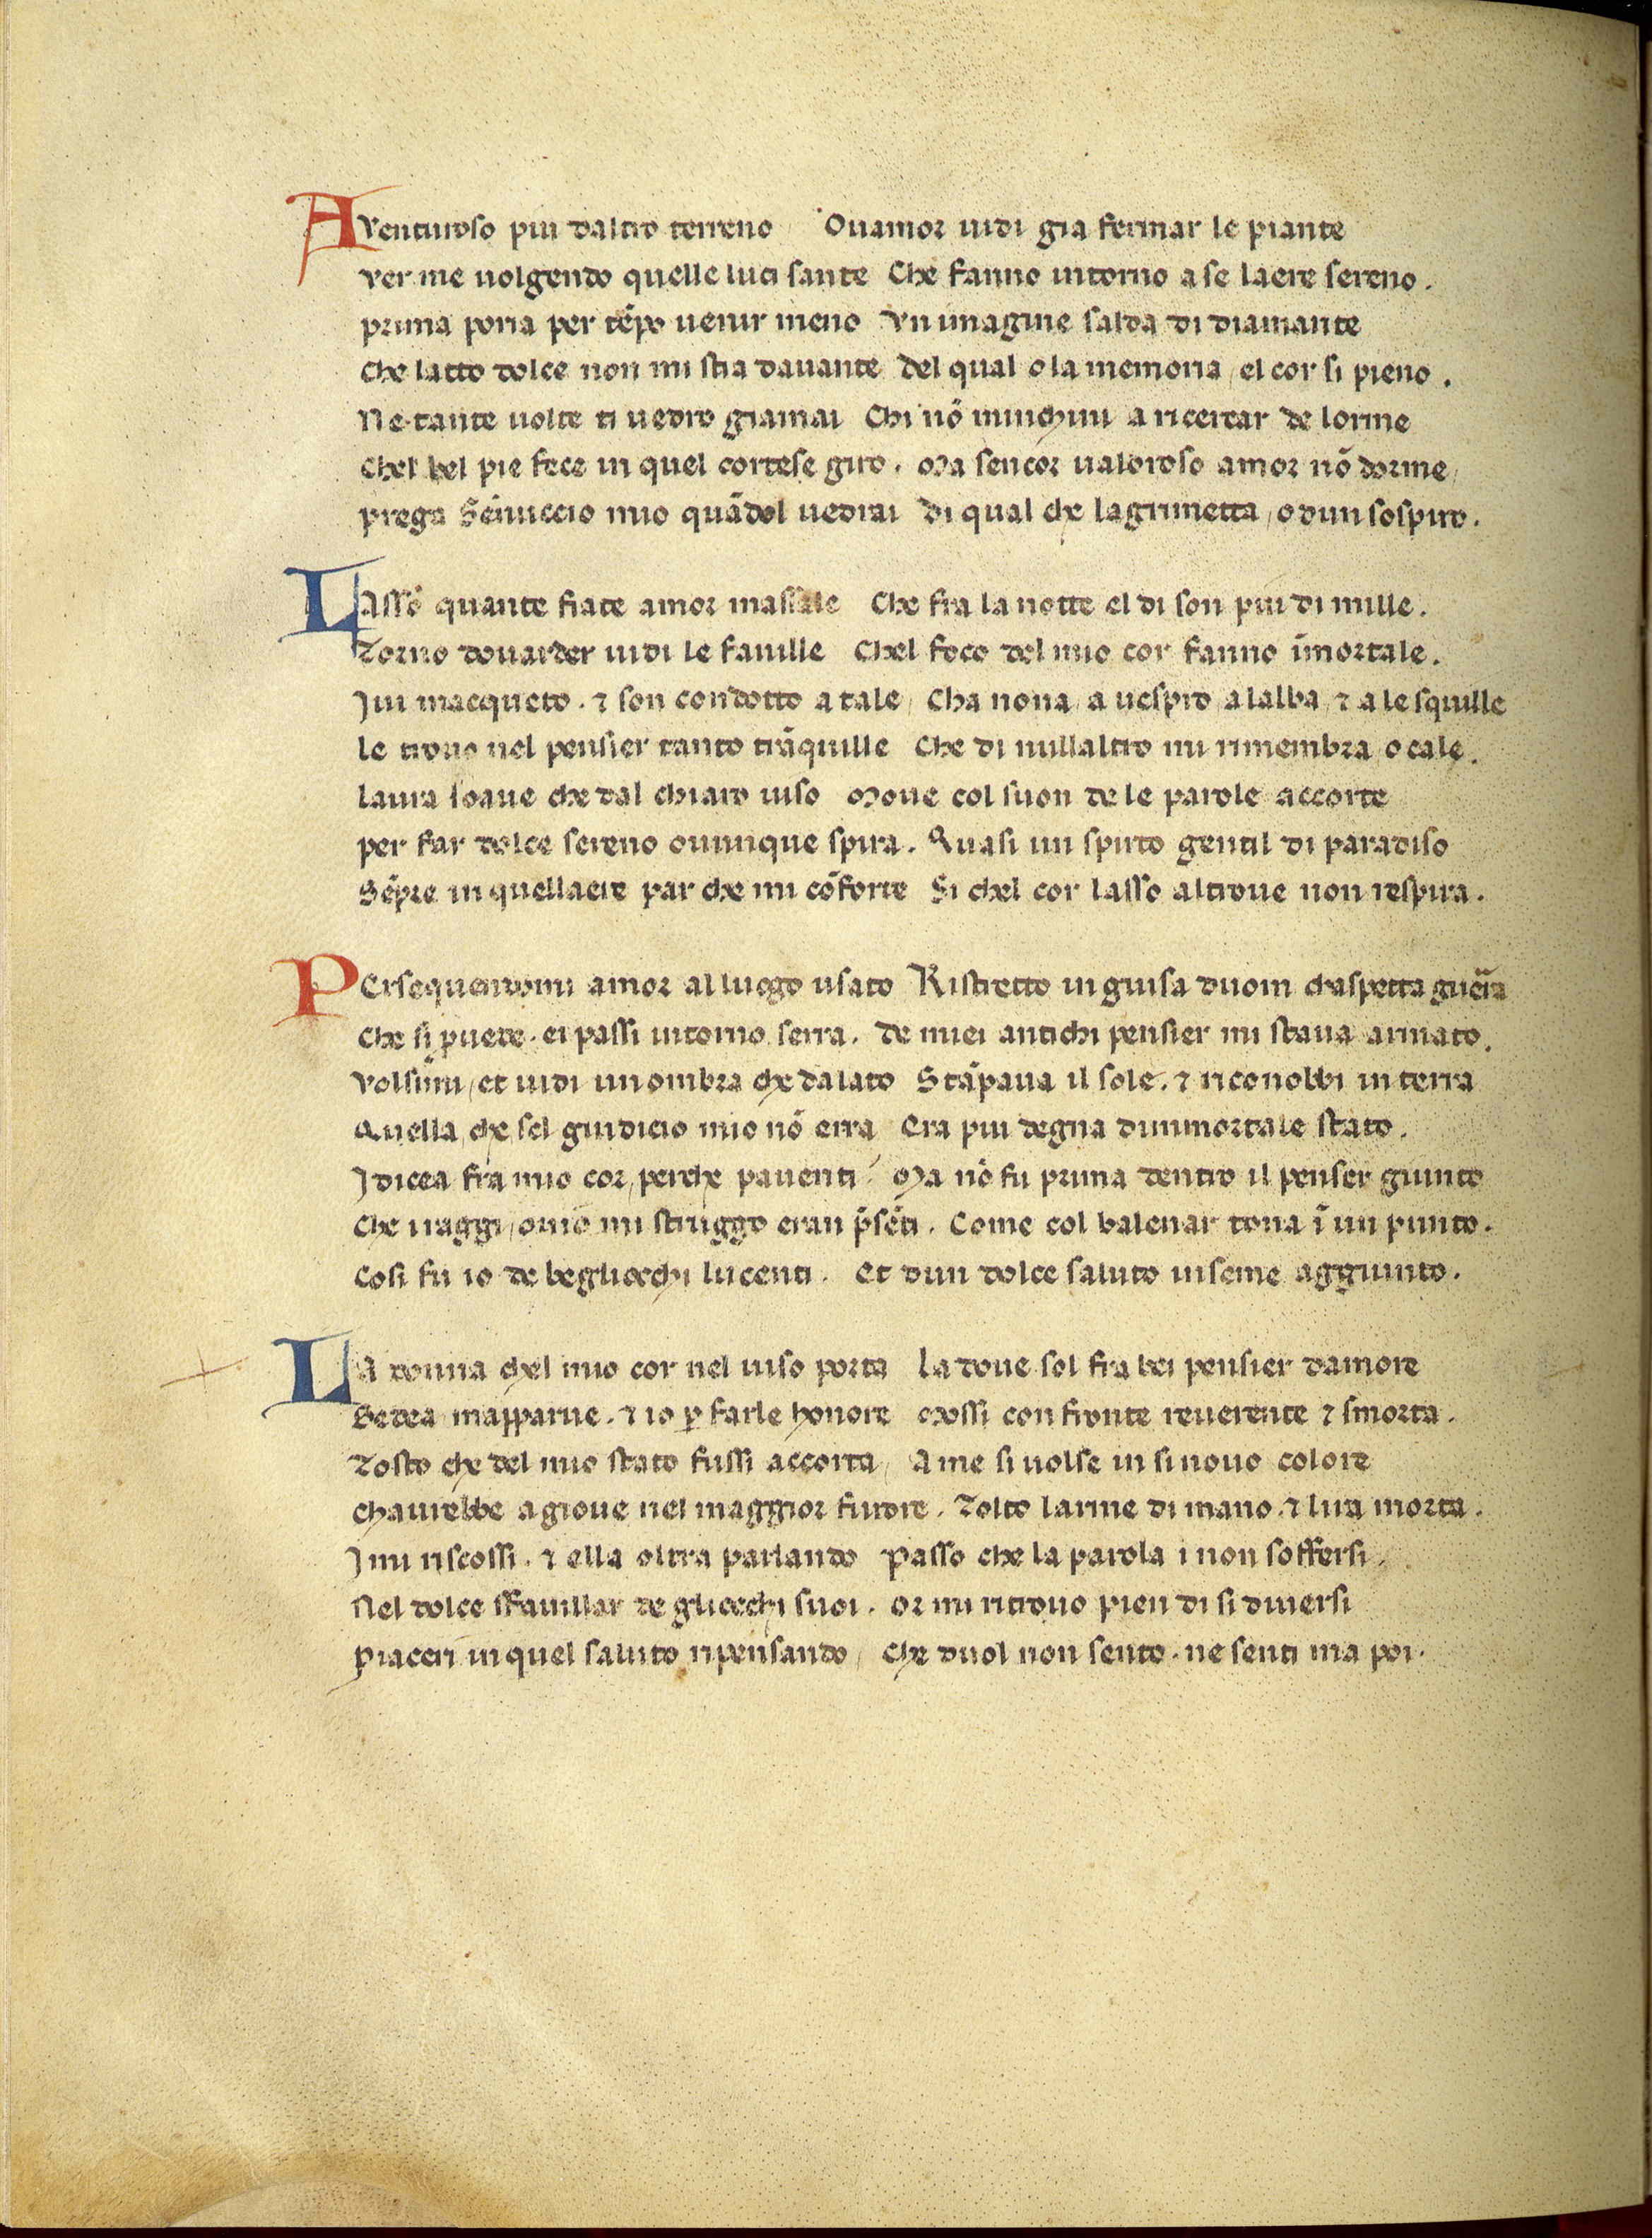 AVenturoso piu daltro terreno Ouamor uidi gia fermar le piante
ver me uolgendo quelle luci sante Che fanno intorno a se laere sereno.
prima poria per tēpo uenir meno Vn imagine salda di diamante
Che latto dolce non mi stia dauante del qual o la memoria / el cor si pieno.
Ne tante uolte ti uedro giamai Chi nō minchini a ricercar de lorme
Chel bel pie fece in quel cortese giro. Ma sencor ualoroso amor nō dorme /
prega Sēnuccio mio quādol uedrai di qual che lagrimetta / o dun sospiro.
LAsso quante fiate amor massale Che fra la notte el di son piu di mille.
Torno douarder uidi le fauille Chel foco del mio cor fanno īmortale.
Iui macqueto. ⁊ son condotto a tale / Cha nona / a uespro / a lalba / ⁊ a le squille
le trouo nel pensier tanto trāquille Che di nullaltro mi rimembra o cale.
laura soaue che dal chiaro uiso Moue col suon de le parole accorte
per far dolce sereno ouunque spira. Quasi un spirto gentil di paradiso
Sēpre in quellaere par che mi cōforte Si chel cor lasso altroue non respira.
PErsequendomi amor al luogo usato Ristretto in guisa duom chaspetta guerra
Che si puede. ei passi intorno serra. de miei antichi pensier mi staua armato.
Volsimi / et uidi un ombra che da lato Stāpaua il sole. ⁊ riconobbi in terra
Quella / che sel giudicio mio nō erra Era piu degna dimmortale stato.
I dicea fra mio cor / perche pauenti Ma nō fu prima dentro il penser giunto
Che i raggi / ouio mi struggo eran p̄sēti. Come col balenar tona ī un punto.
Cosi fu io de begliocchi lucenti. Et dun dolce saluto inseme aggiunto.
LA donna chel mio cor nel uiso porta la doue sol fra bei pensier damore
Sedea mapparue. ⁊ io ꝑ farle honore Mossi con fronte reuerente ⁊ smorta.
Tosto che del mio stato fussi accorta / A me si uolse in si nouo colore
Chaurebbe a gioue nel maggior furore. Tolto larme di mano. ⁊ lira morta.
I mi riscossi. ⁊ ella oltra parlando Passo che la parola i non soffersi.
Nel dolce sfauillar de gliocchi suoi. Or mi ritrouo pien di si diuersi
Piaceri in quel saluto ripensando / Che duol non sento. ne senti ma poi.